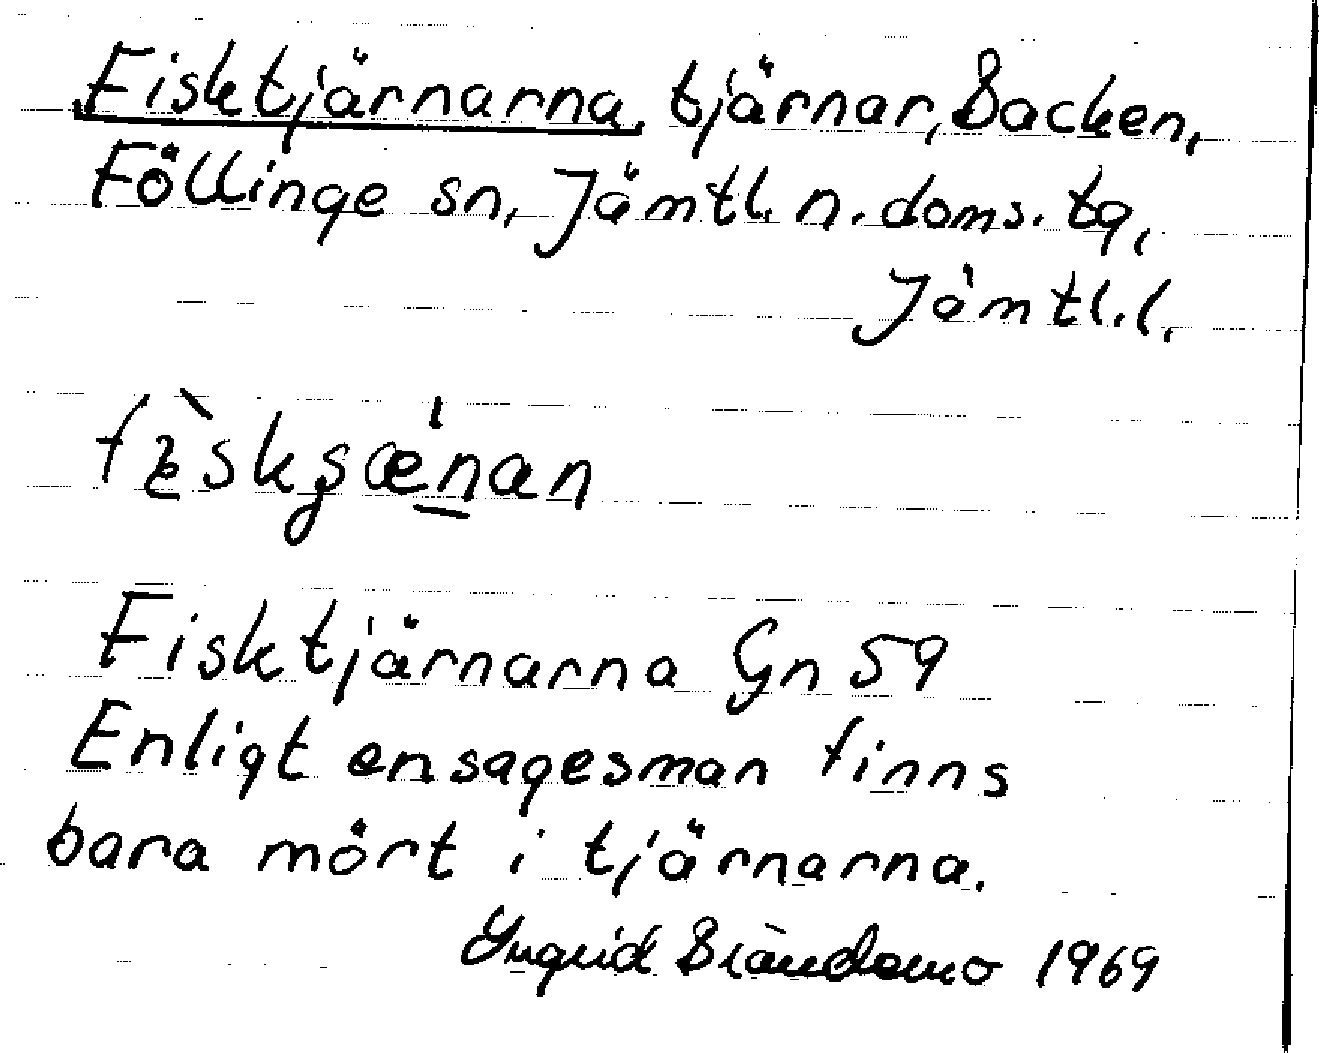 Fisktjärnarna, tjärnar, Backen,
Föllinge sn, Jämtl. n. doms. tg,
Jämtl. l.
Fisktjärnarna Gn 59
Enligt en sagesman finns
bara mört i tjärnarna.
Ingrid 1969